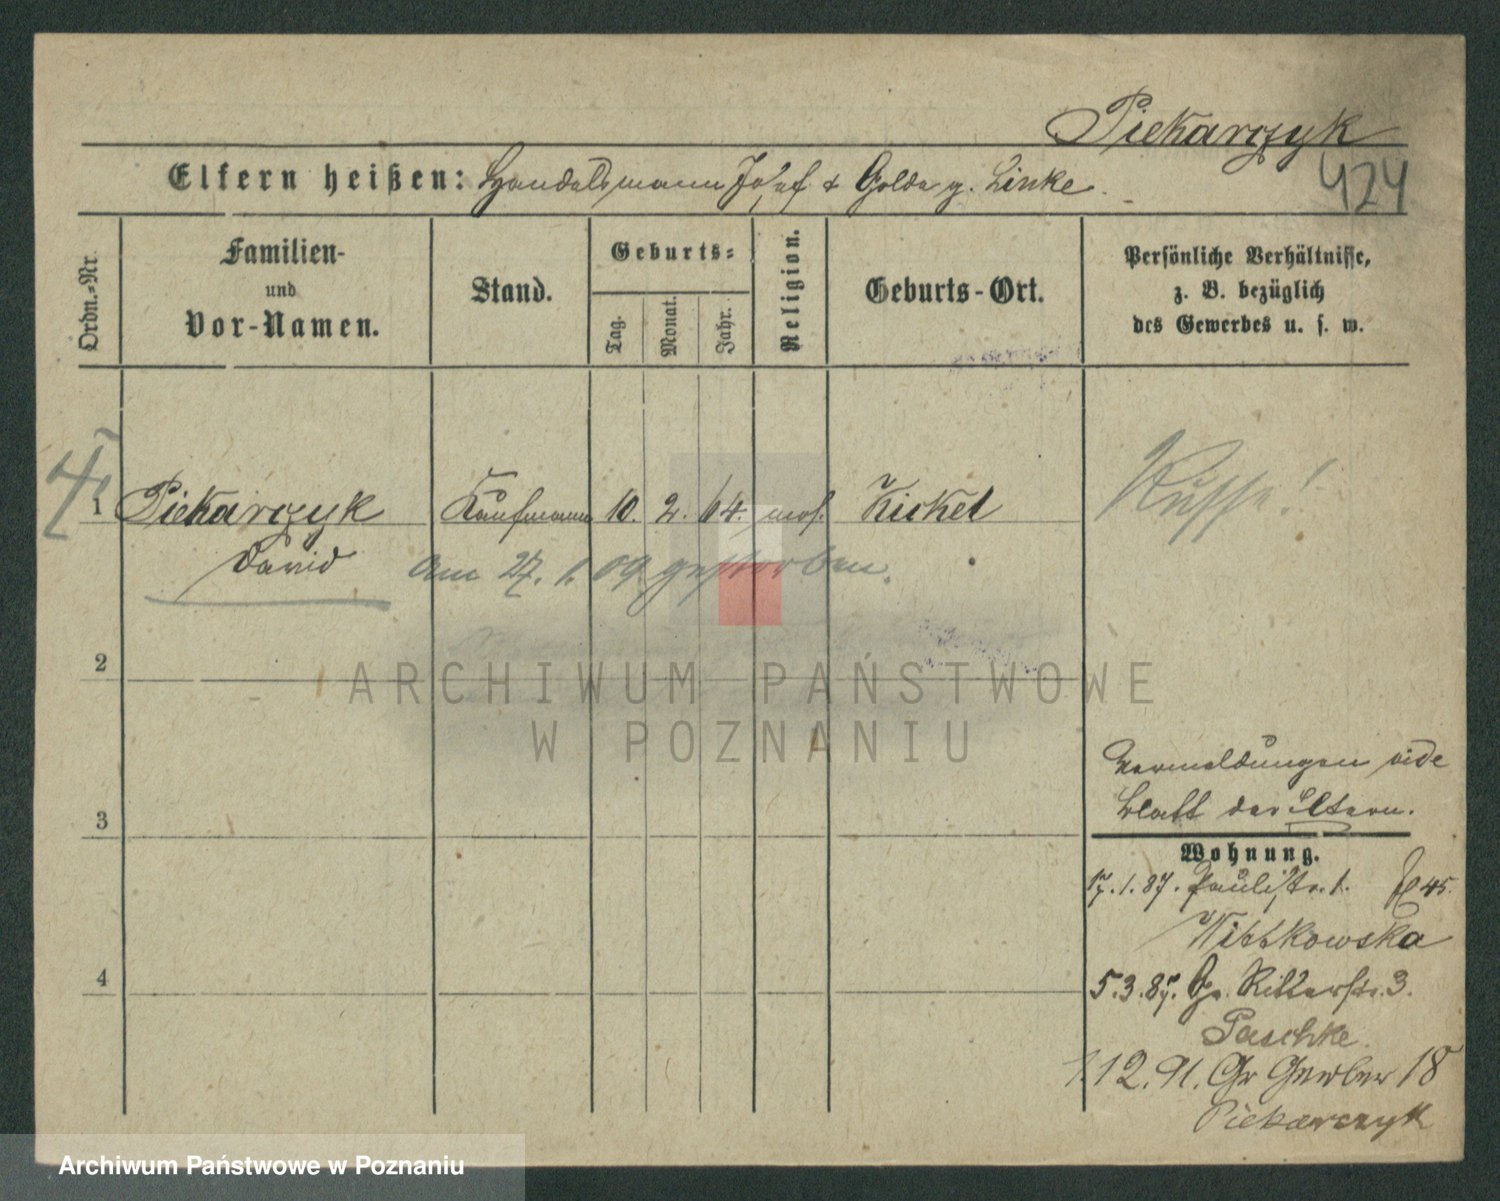 Piekarczyk
Eltern heißen: Handelsmann Josef & Golda g. Linke.
424
Ordn.-Nr.
Familien-
und
Vor-Namen.
Stand.
Geburts-
Tag.
Monat.
Jahr.
Religion.
Geburts-Ort.
Persönliche Verhältnisse,
z. B. bezüglich
des Gewerbes u. s. w.
1 Piekarczyk Kaufmann 10. 2. 64. mos. Kickel
Russe!
David
am 27. 1. 09 gestorben.
2
3
4
ARCHIWUM PAŃSTWOWE
W POZNANIU
Vermeldungen vide
Blatt der Eltern.
Wohnung.
17. 1. 87. Paulistr. 1. 45.
Wittkowska
5. 3. 87. Gr. Ritterstr. 3.
Paschke.
1 12. 91. Gr Gerber 18
Piekarczyk
Archiwum Państwowe w Poznaniu